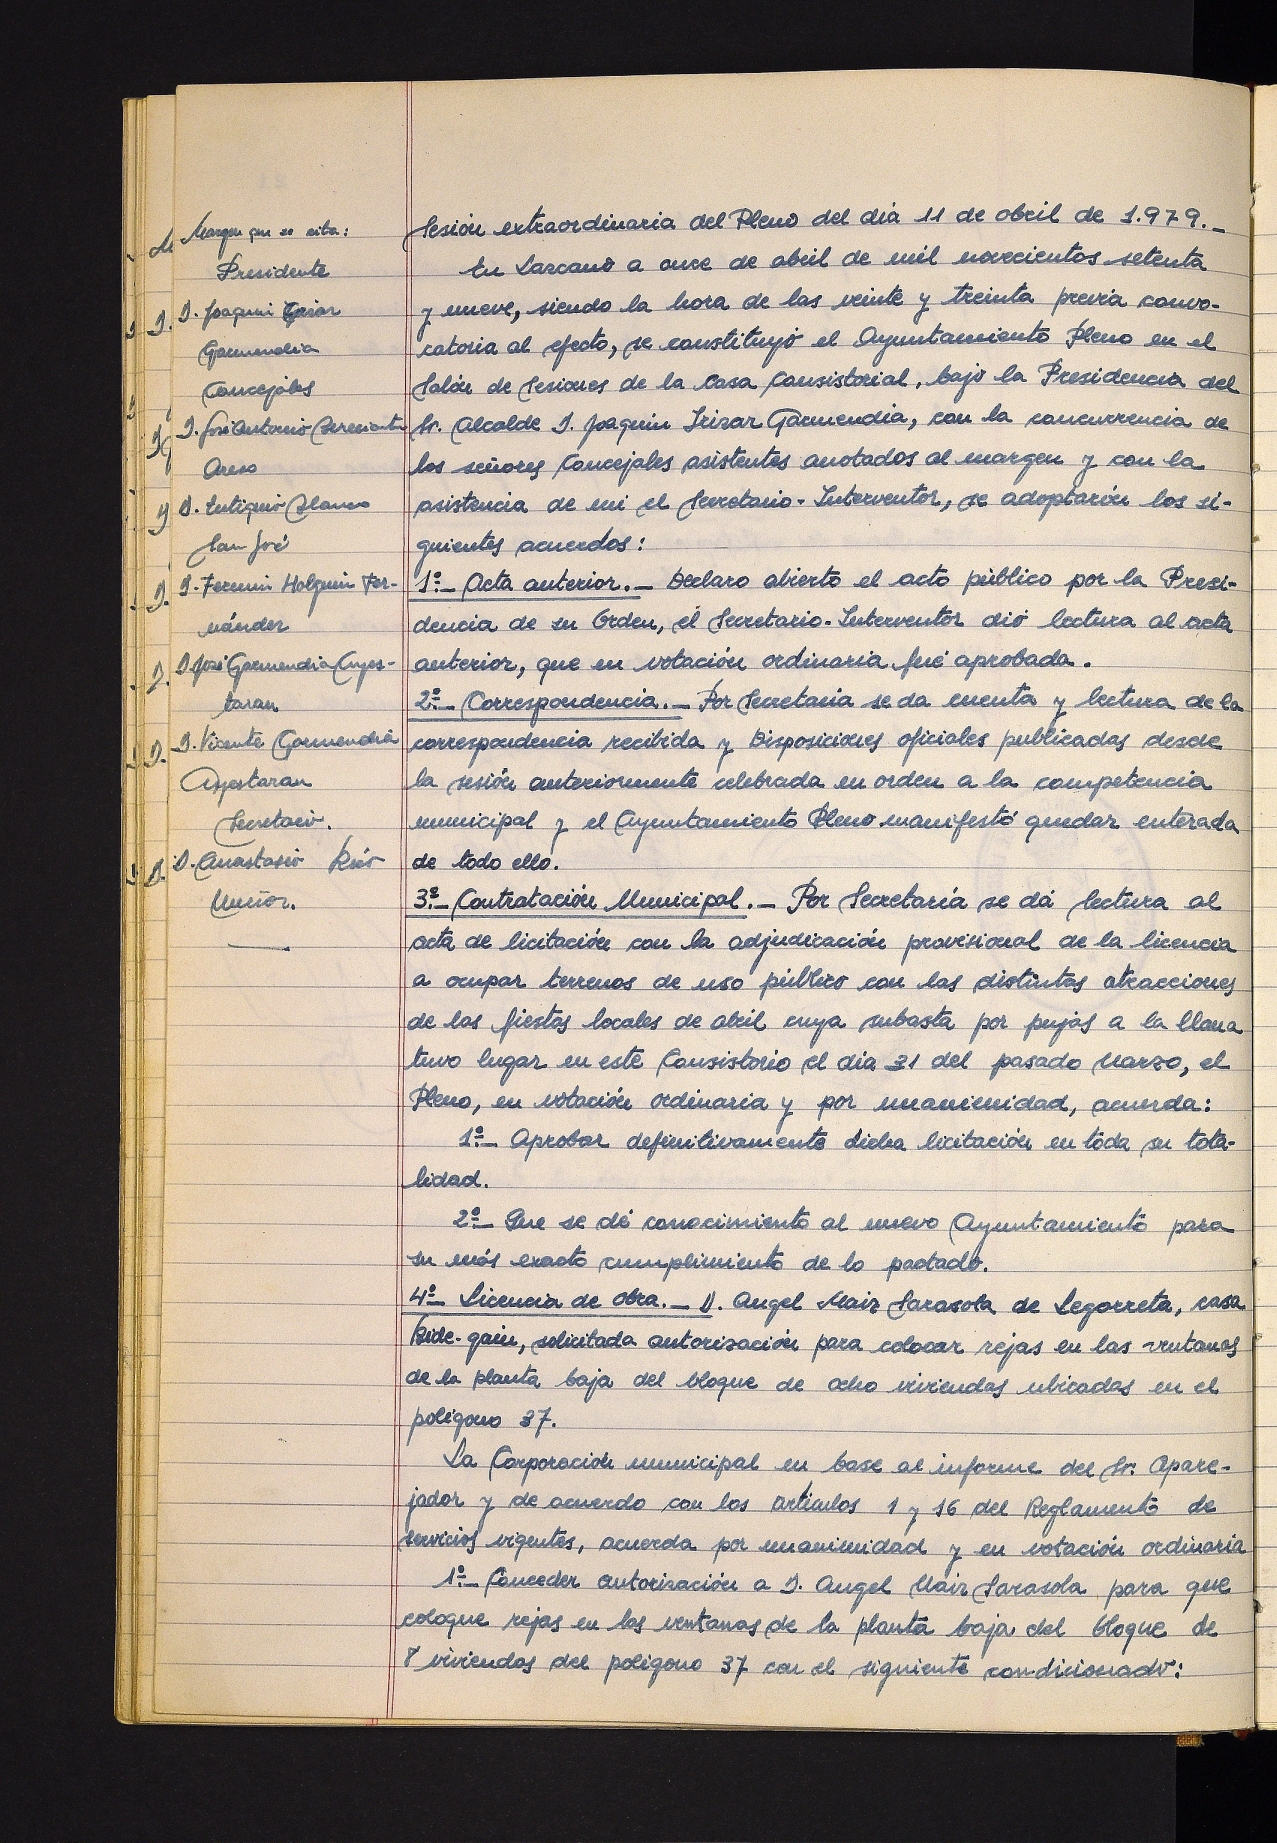 Margen que se cita:
Presidente
D. Joaquin Irizar
Garmendia
Concejales
D. José Antonio Berasiartu
Areso
D. Eutiquio Blanco
San José
D. Fermin Holguin Fer-
nández
D. José Garmendia Ayes-
taran
D. Vicente Garmendia
Ayestaran
Secretario.
D. Anastasio Ruiz
Muñoz.
Sesión extraordinaria del Pleno del dia 11 de abril de 1.979.-
En Lazcano a once de abril de mil novecientos setenta
y nueve, siendo la hora de las veinte y treinta previa convo-
catoria al efecto, se constituyó el Ayuntamiento Pleno en el
Salón de Sesiones de la Casa Consistorial, bajo la Presidencia del
Sr. Alcalde D. Joaquin Irizar Garmendia, con la concurrencia de
los señores Concejales asistentes anotados al margen y con la
asistencia de mi el Secretario-Interventor, se adoptarón los si-
guientes acuerdos:
1º- Acta anterior.- Declaro abierto el acto público por la Presi-
dencia de su Orden, él Secretario-Interventor dió lectura al acta
anterior, que en votación ordinaria fué aprobada.
2º- Correspondencia.- Por Secretaria se da cuenta y lectura de la
correspondencia recibida y Disposiciones oficiales publicadas desde
la sesión anteriormente celebrada en orden a la competencia
municipal y el Ayuntamiento Pleno manifestó quedar enterada
de todo ello.
3º- Contratación Municipal.- Por Secretaría se dá lectura al
acta de licitación con la adjudicación provisional de la licencia
a ocupar terrenos de uso público con las distintas atracciones
de las fiestas locales de abril cuya subasta por pujas a la llana
tuvo lugar en este Consistorio el dia 31 del pasado Marzo, el
Pleno, en votación ordinaria y por unanimidad, acuerda:
1º- Aprobar definitivamente dicha licitación en toda su tota-
lidad.
2º- Que se dé conocimiento al nuevo Ayuntamiento para
su más exacto cumplimiento de lo pactado.
4º- Licencia de obra.- D. Angel Maiz Sarasola de Legorreta, casa
Bide-gain, solicitada autorización para colocar rejas en las ventanas
de la planta baja del bloque de ocho viviendas ubicadas en el
poligono 37.
La Corporación municipal en base al informe del Sr. Apare-
jador y de acuerdo con los artículos 1 y 16 del Reglamento de
servicios vigentes, acuerda por unanimidad y en votación ordinaria
1º- Conceder autorización a D. Angel Maiz Sarasola para que
coloque rejas en las ventanas de la planta baja del bloque de
8 viviendas del poligono 37 con el siguiente condicionado: